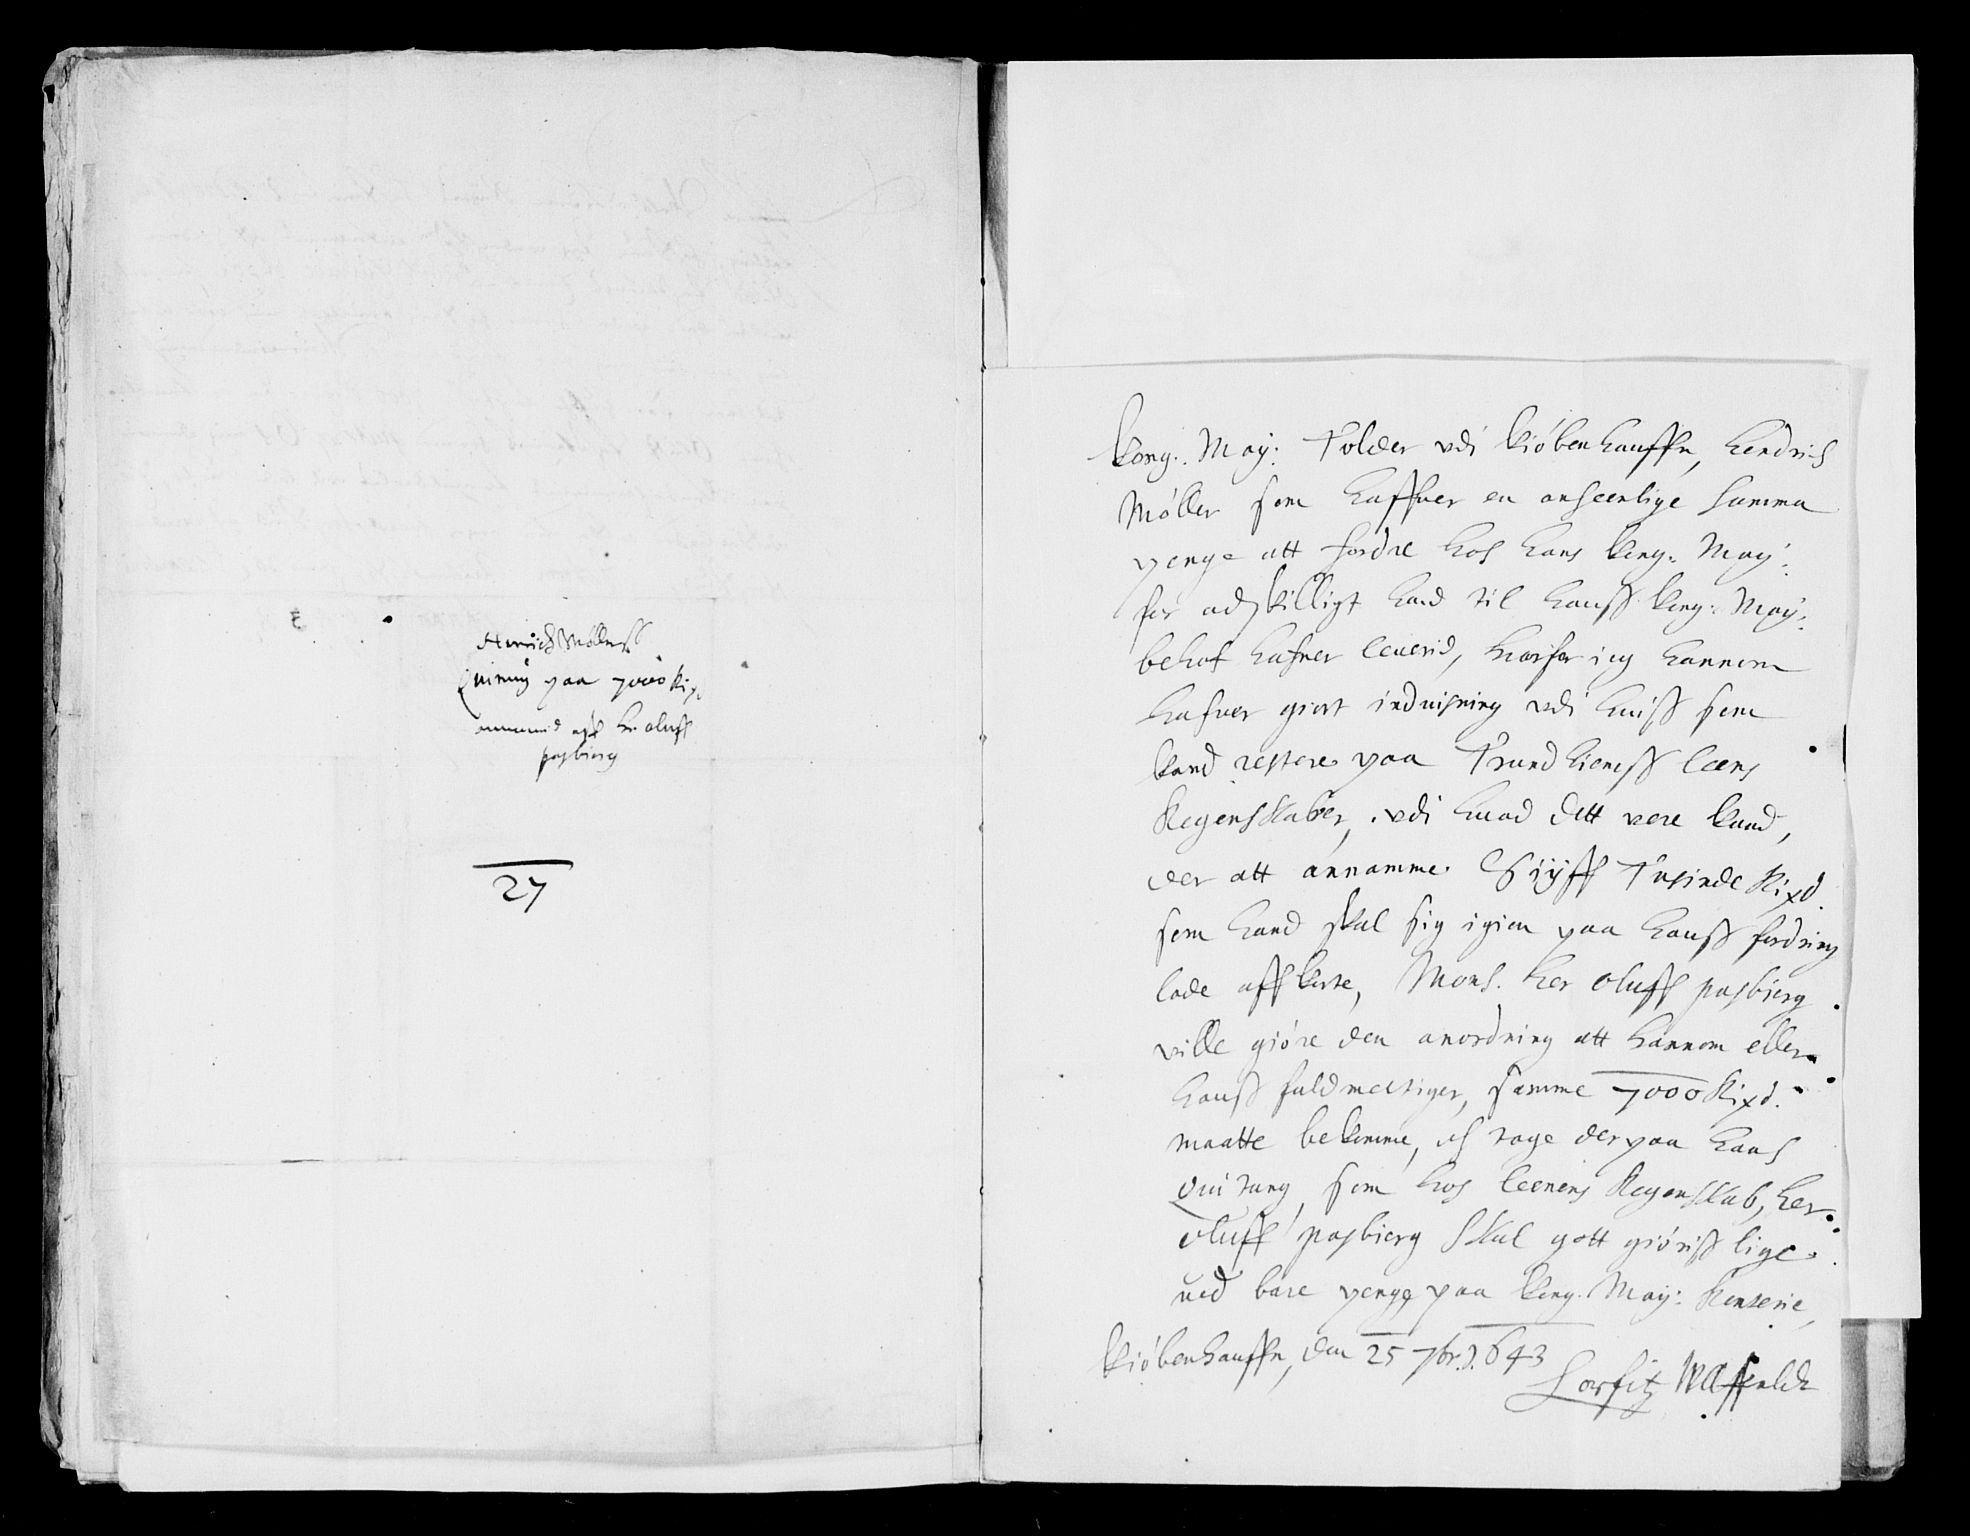 Henrich Møllerß
Quitung paa 7000 Rixd
annamid aff her oluff
pasbierg
27
Kong: May: Tolder vdi kiöbenhauffn, Hendrich
Möller som haffuer en anseenlige summa
penge att fordre hos hans kong: May:
for adskilligt hand til hanß kong: May:
behof hafuer leuerid, huorfor ieg hannem
hafuer giort induisning vdi huiß som
kand restere paa Trundhiemß leens
Regenskaber, vdi huad dett vere kand,
der att annamme Siyff Tusinde Rixd.
som hand skal sig igien paa hanß fordring
lade affkorte, Mons. her oluff pasbierg
ville giöre den anordning att hannom eller
hanß fuldmectiger, samme 7000 Rixd.
maatte bekomme, och tage derpaa hans
quitung, som hos leenens Regenskab, her
oluff pasbierg skal gott giöriß lige
ued bare penge paa kong. May: Renterie,
kiöbenhauffn, den 25 7br. 1643
Corfitz Ulffeldt